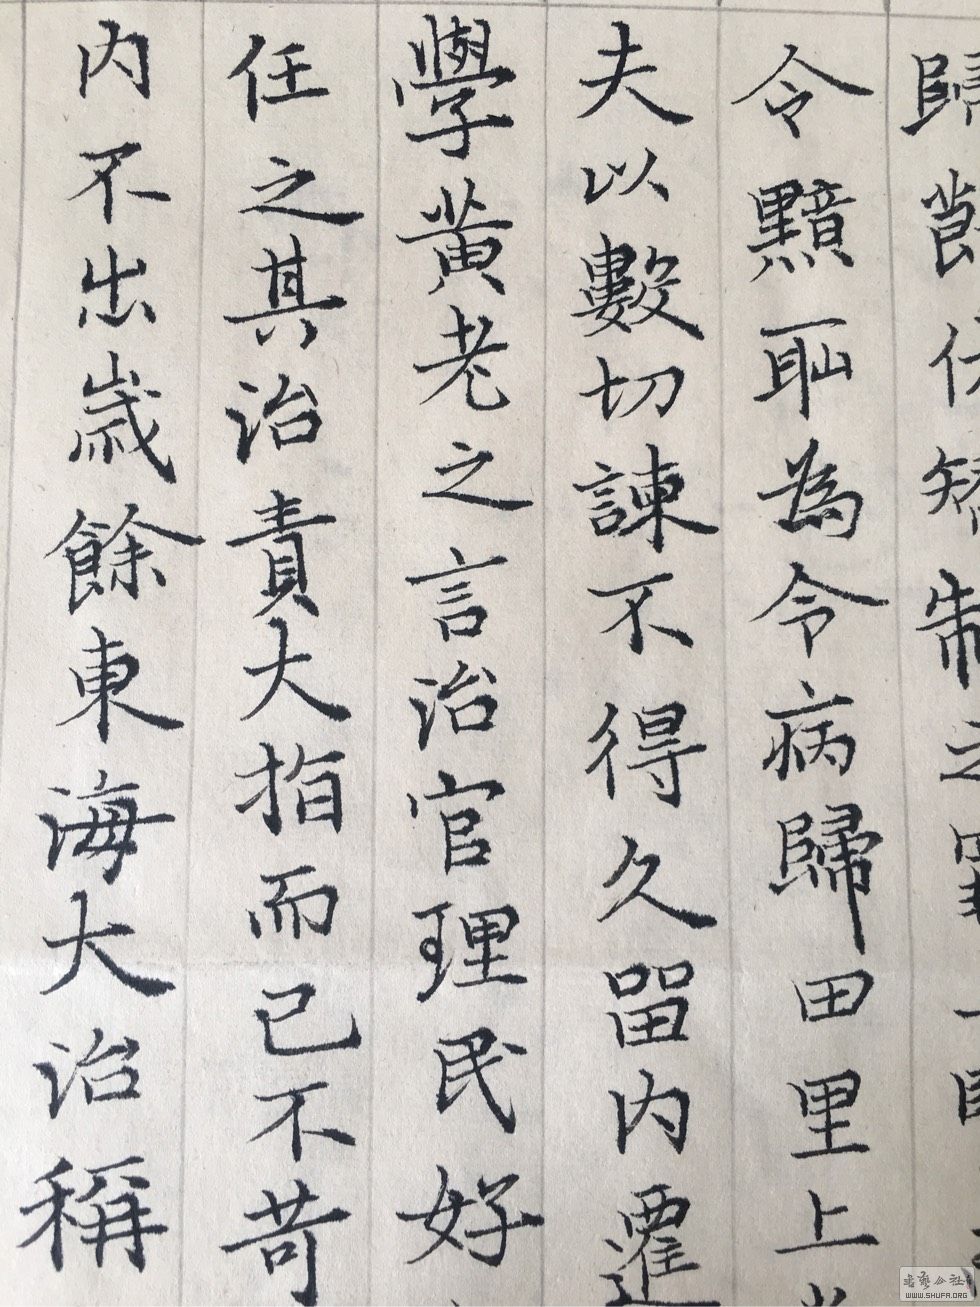 歸節伏矯制之罪上
令黯耻為令病歸田里上
夫以數切諫不得久留內遷
學黃老之言治官理民好
任之其治責大指而已不苛
內不出歲餘東海大治稱
WWW.SHUFA.ORG